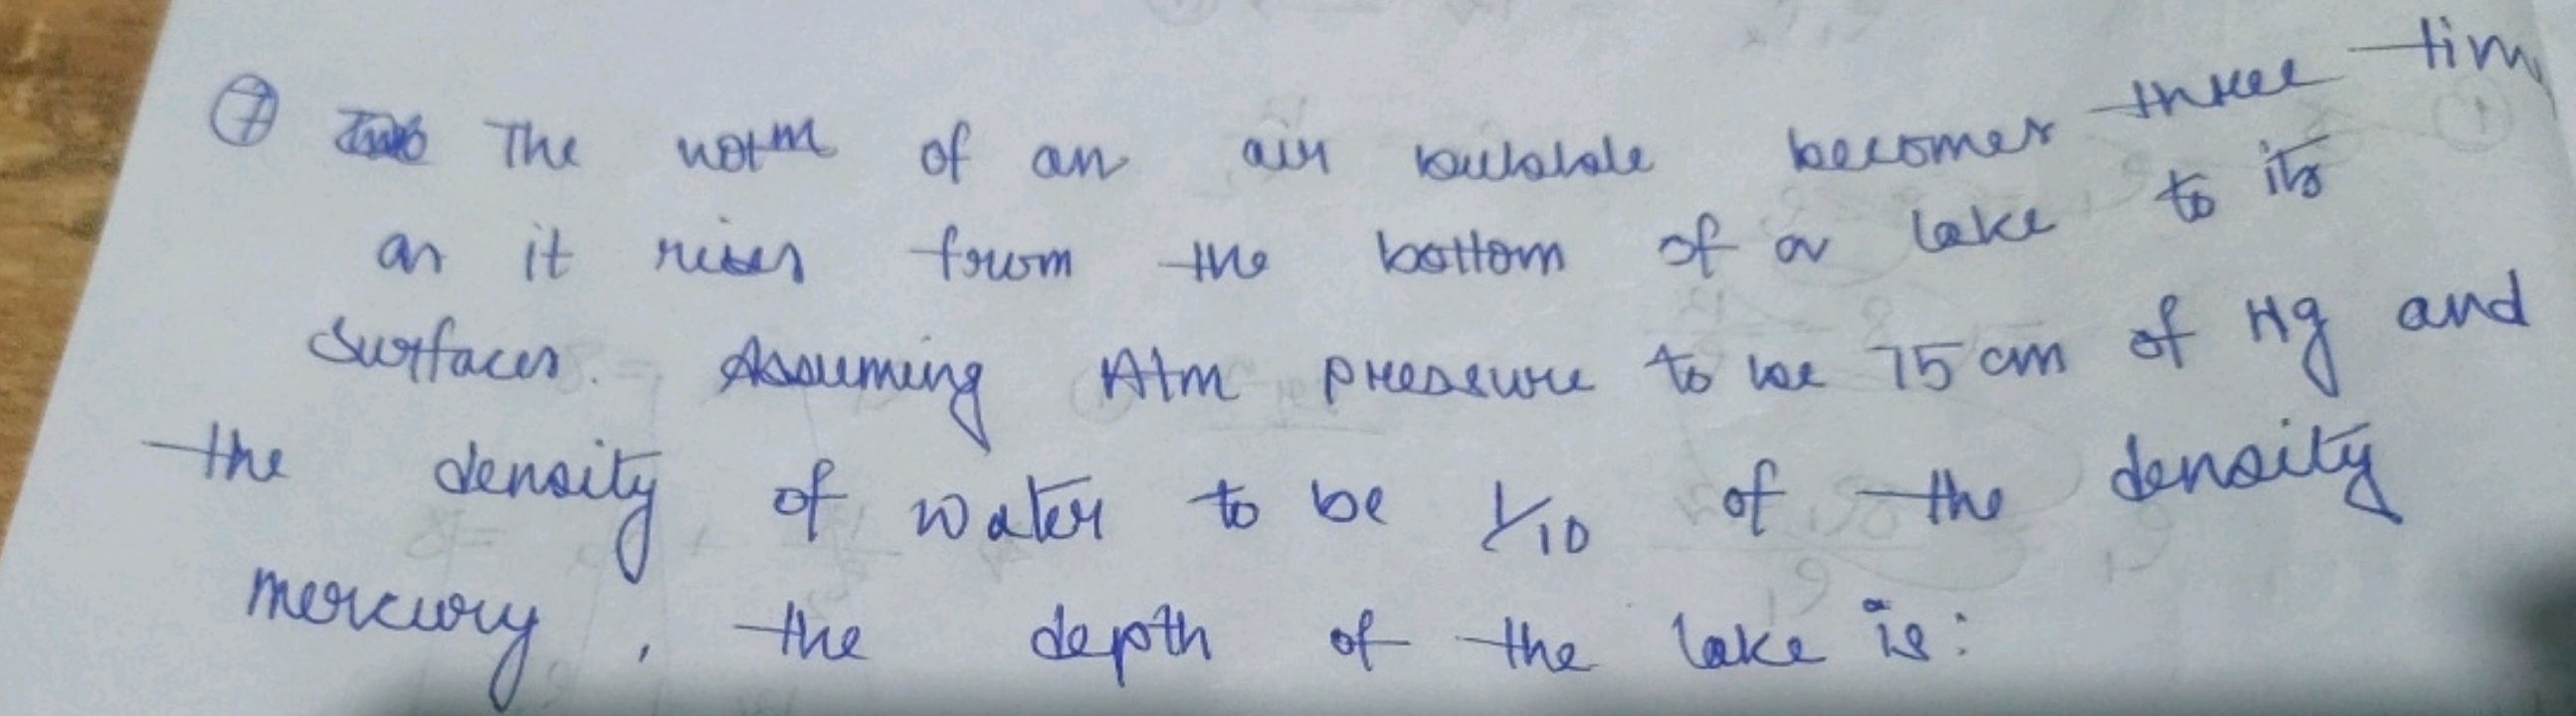 ⑦ The volm of an air bubble becomes three tim
as it rises from the bottom of a lake to its
surfaces. Assuming Atm pressure to be 75 cm of Hg and
the density of water to be 1/10 of the density
mercury, the depth of the lake is: